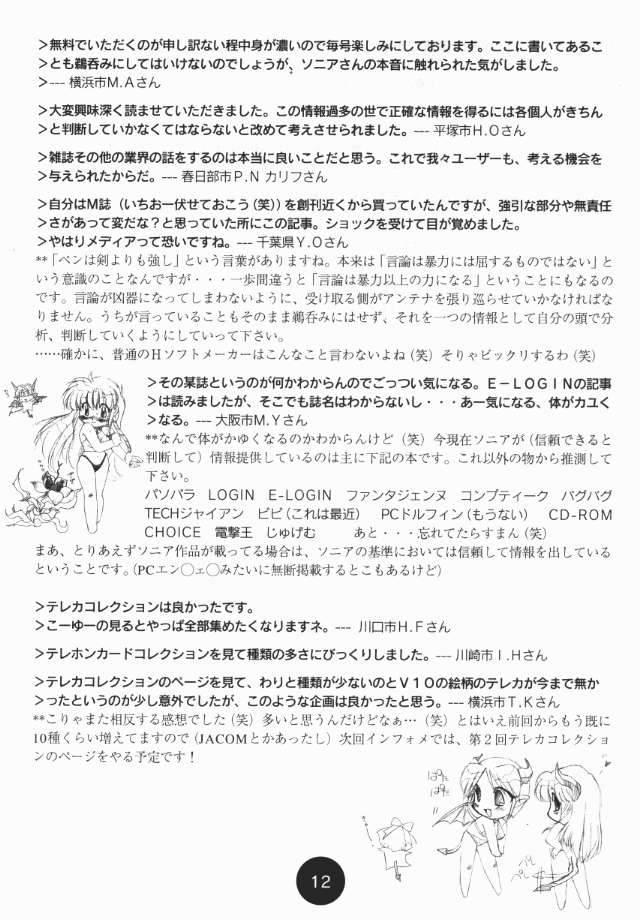 ＞無料でいただくのが申し訳ない程中身が濃いので毎号楽しみにしております。ここに書いてあるこ
＞とも鵜呑みにしてはいけないのでしょうが、ソニアさんの本音に触れられた気がしました。
＞--- 横浜市M.Aさん
＞大変興味深く読ませていただきました。この情報過多の世で正確な情報を得るには各個人がきちん
＞と判断していかなくてはならないと改めて考えさせられました。--- 平塚市H.Oさん
＞雑誌その他の業界の話をするのは本当に良いことだと思う。これで我々ユーザーも、考える機会を
＞与えられたからだ。--- 春日部市P.N カリフさん
＞自分はM誌（いちお一伏せておこう（笑））を創刊近くから買っていたんですが、強引な部分や無責任
＞さがあって変だな？と思っていた所にこの記事。ショックを受けて目が覚めました。
＞やはりメディアって恐いですね。--- 千葉県Y.Oさん
**「ペンは剣よりも強し」という言葉がありますね。本来は「言論は暴力には屈するものではない」と
いう意識のことなんですが・・・一歩間違うと「言論は暴力以上の力になる」ということにもなるの
です。言論が凶器になってしまわないように、受け取る側がアンテナを張り巡らせていかなければな
りません。うちが言っていることもそのまま鵜呑みにはせず、それを一つの情報として自分の頭で分
析、判断していくようにしていって下さい。
……確かに、普通のHソフトメーカーはこんなこと言わないよね（笑）そりゃビックリするわ（笑）
＞その某誌というのが何かわからんのでごっつい気になる。E－LOGINの記事
＞は読みましたが、そこでも誌名はわからないし・・・あー気になる、体がカユく
＞なる。--- 大阪市M.Yさん
**なんで体がかゆくなるのかわからんけど（笑）今現在ソニアが（信頼できると
判断して）情報提供しているのは主に下記の本です。これ以外の物から推測して
下さい。
パソパラ　LOGIN　E-LOGIN　ファンタジェンヌ　コンプティーク　バグバグ
TECHジャイアン　ビビ（これは最近）　PCドルフィン（もうない）　CD-ROM
CHOICE　電撃王　じゅげむ　　あと・・・忘れてたらすまん（笑）
まあ、とりあえずソニア作品が載ってる場合は、ソニアの基準においては信頼して情報を出している
ということです。（PCエン◯ェ◯みたいに無断掲載するとこもあるけど）
＞テレカコレクションは良かったです。
＞こーゆーの見るとやっぱ全部集めたくなりますネ。--- 川口市H.Fさん
＞テレホンカードコレクションを見て種類の多さにびっくりしました。--- 川崎市I.Hさん
＞テレカコレクションのページを見て、わりと種類が少ないのとV10の絵柄のテレカが今まで無か
＞ったというのが少し意外でしたが、このような企画は良かったと思う。--- 横浜市T.Kさん
**こりゃまた相反する感想でした（笑）多いと思うんだけどなぁ…（笑）とはいえ前回からもう既に
10種くらい増えてますので（JACOMとかあったし）次回インフォメでは、第２回テレカコレクショ
ンのページをやる予定です！
ぱた
ぱた
12